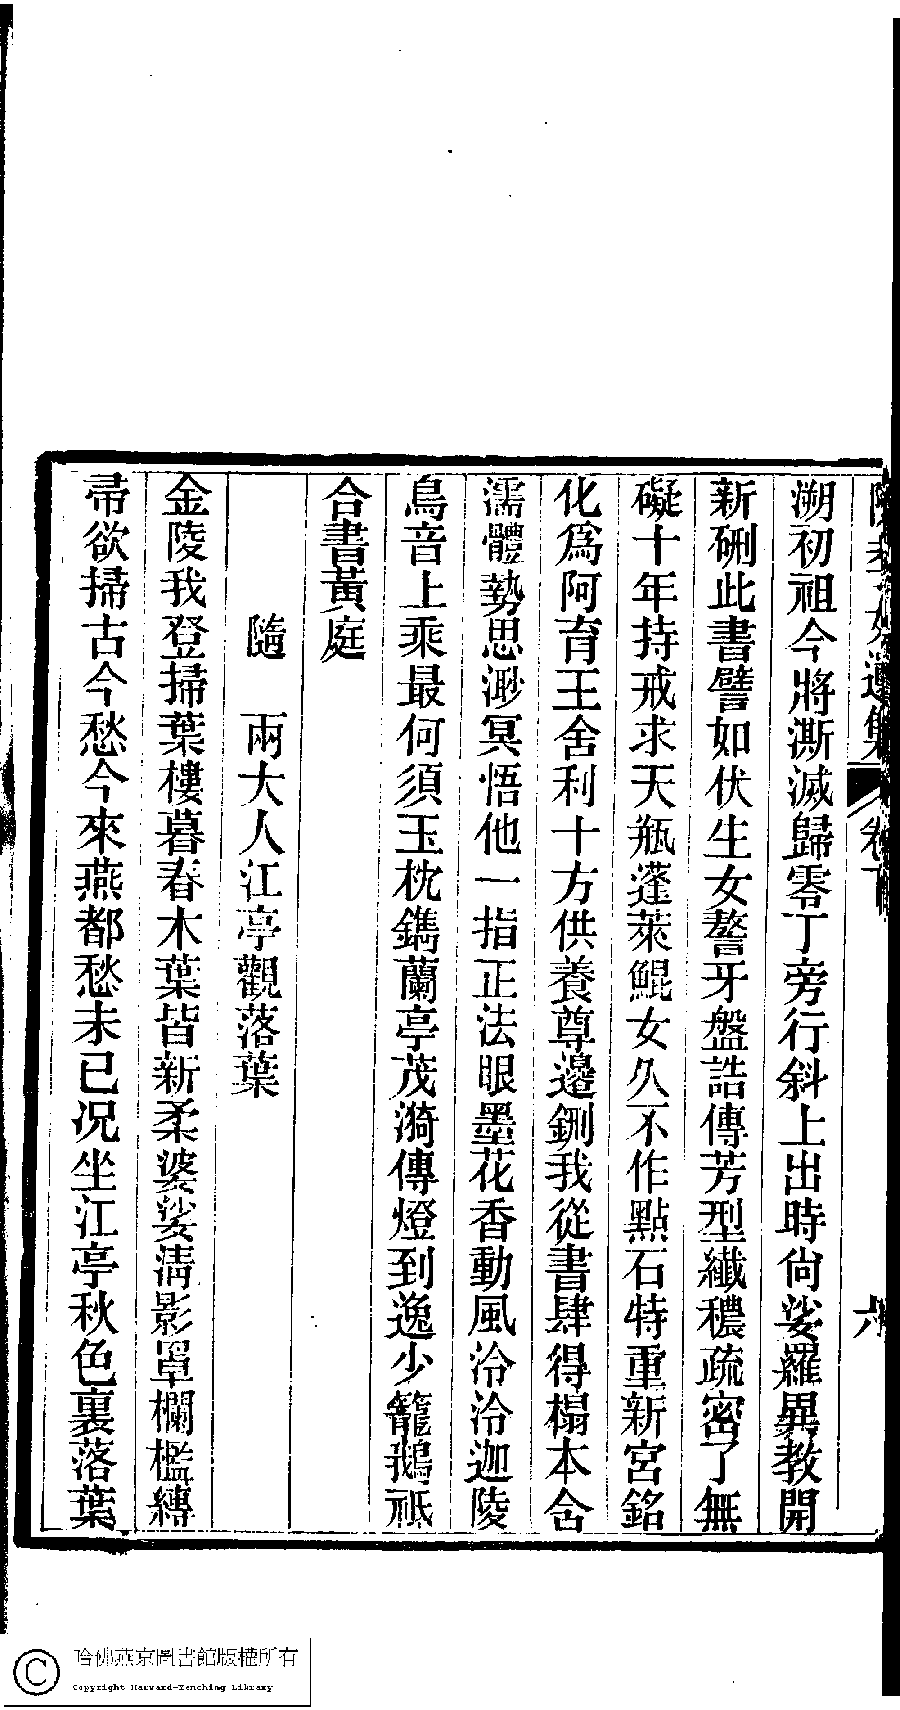 溯初祖今將澌滅歸零丁旁行斜上出時尙娑羅異教開
新硎此書譬如伏生女謷牙盤誥傳芳型纖穠疏密了無
礙十年持戒求天瓶蓬萊鯤女久不作點石特重新宮銘
化爲阿育王舍利十方供養尊邊鉶我從書肆得榻本含
濡體勢思渺冥悟他一指正法眼墨花香動風泠泠迦陵
鳥音上乘最何須玉枕鐫蘭亭茂漪傳燈到逸少籠鵝祗
合書黃庭
隨　兩大人江亭觀落葉
金陵我登掃葉樓暮春木葉皆新柔婆娑淸影罩欄檻縳
帚欲掃古今愁今來燕都愁未已況坐江亭秋色裏落葉
卷下
六
哈佛燕京圖書館版權所有
Copyright Harvard-Yenching Library